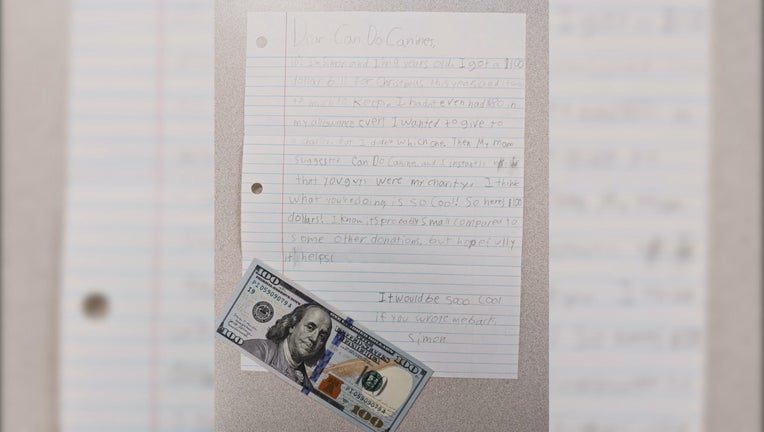 Dear Can Do Canines,
I'm Simon and I'm 9 years old. I got a $100
dollar bill for Christmas this year
to much to keep. I hadn't even had $80 in
my allowance ever! I wanted to give to
a charity but I didn't which one. Then My mom
suggested Can Do Canines and I instantly
that you guys were my charity. I think
what you're doing is so cool! So here's $100
dollars! I know it's probably small compared to
some other donations, but hopefully
it helps!
It would be sooo cool
if you wrote me back.
Simon
100
PI 05909079 A
I9
100
100
PI 05909079 A
100